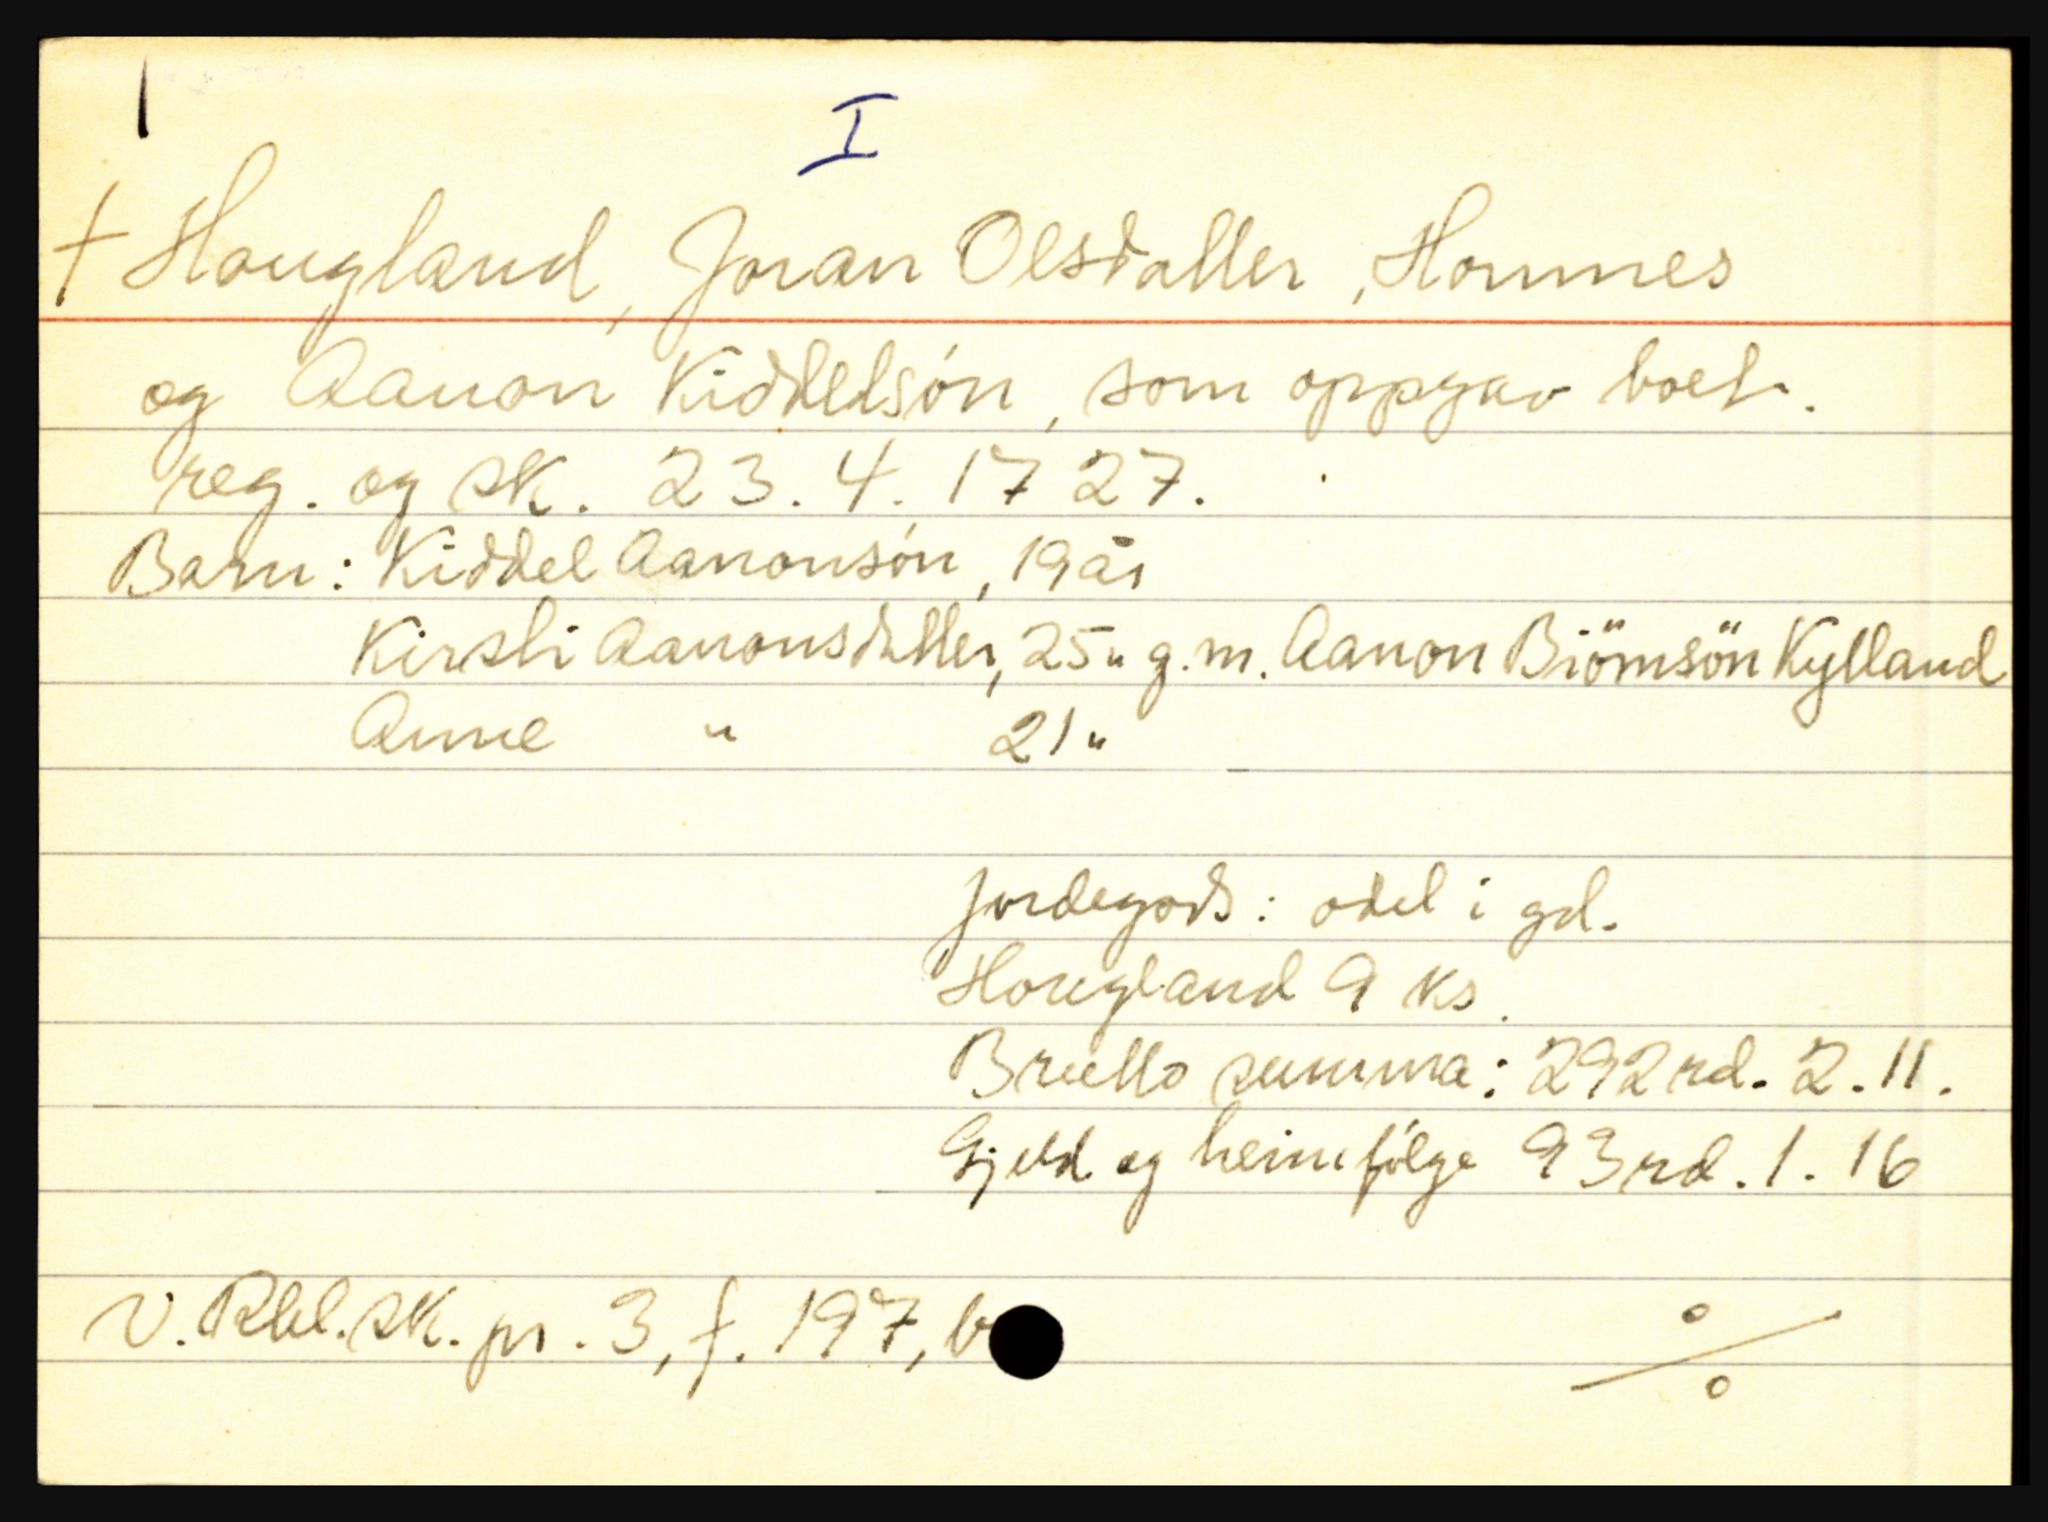 I
† Hougland, Joran Olsdatter, Hornnes
og Aanon Kiddelsón, som oppgav boet.
reg. og sk. 23.4.1727.
Barn: Kiddel Aanonsón, 19 år
Kirsti Aanonsdatter, 25 " g.m. Aanon Biörnsön Kylland
Anne " 21 "
Jordegods: odel i gd.
Hougland 9 ks.
Brutto summa: 292 rd. 2. 11.
Gjeld og heimfölge 93 rd. 1. 16
V. Rbl. sk. pr. 3, f. 197, b
%